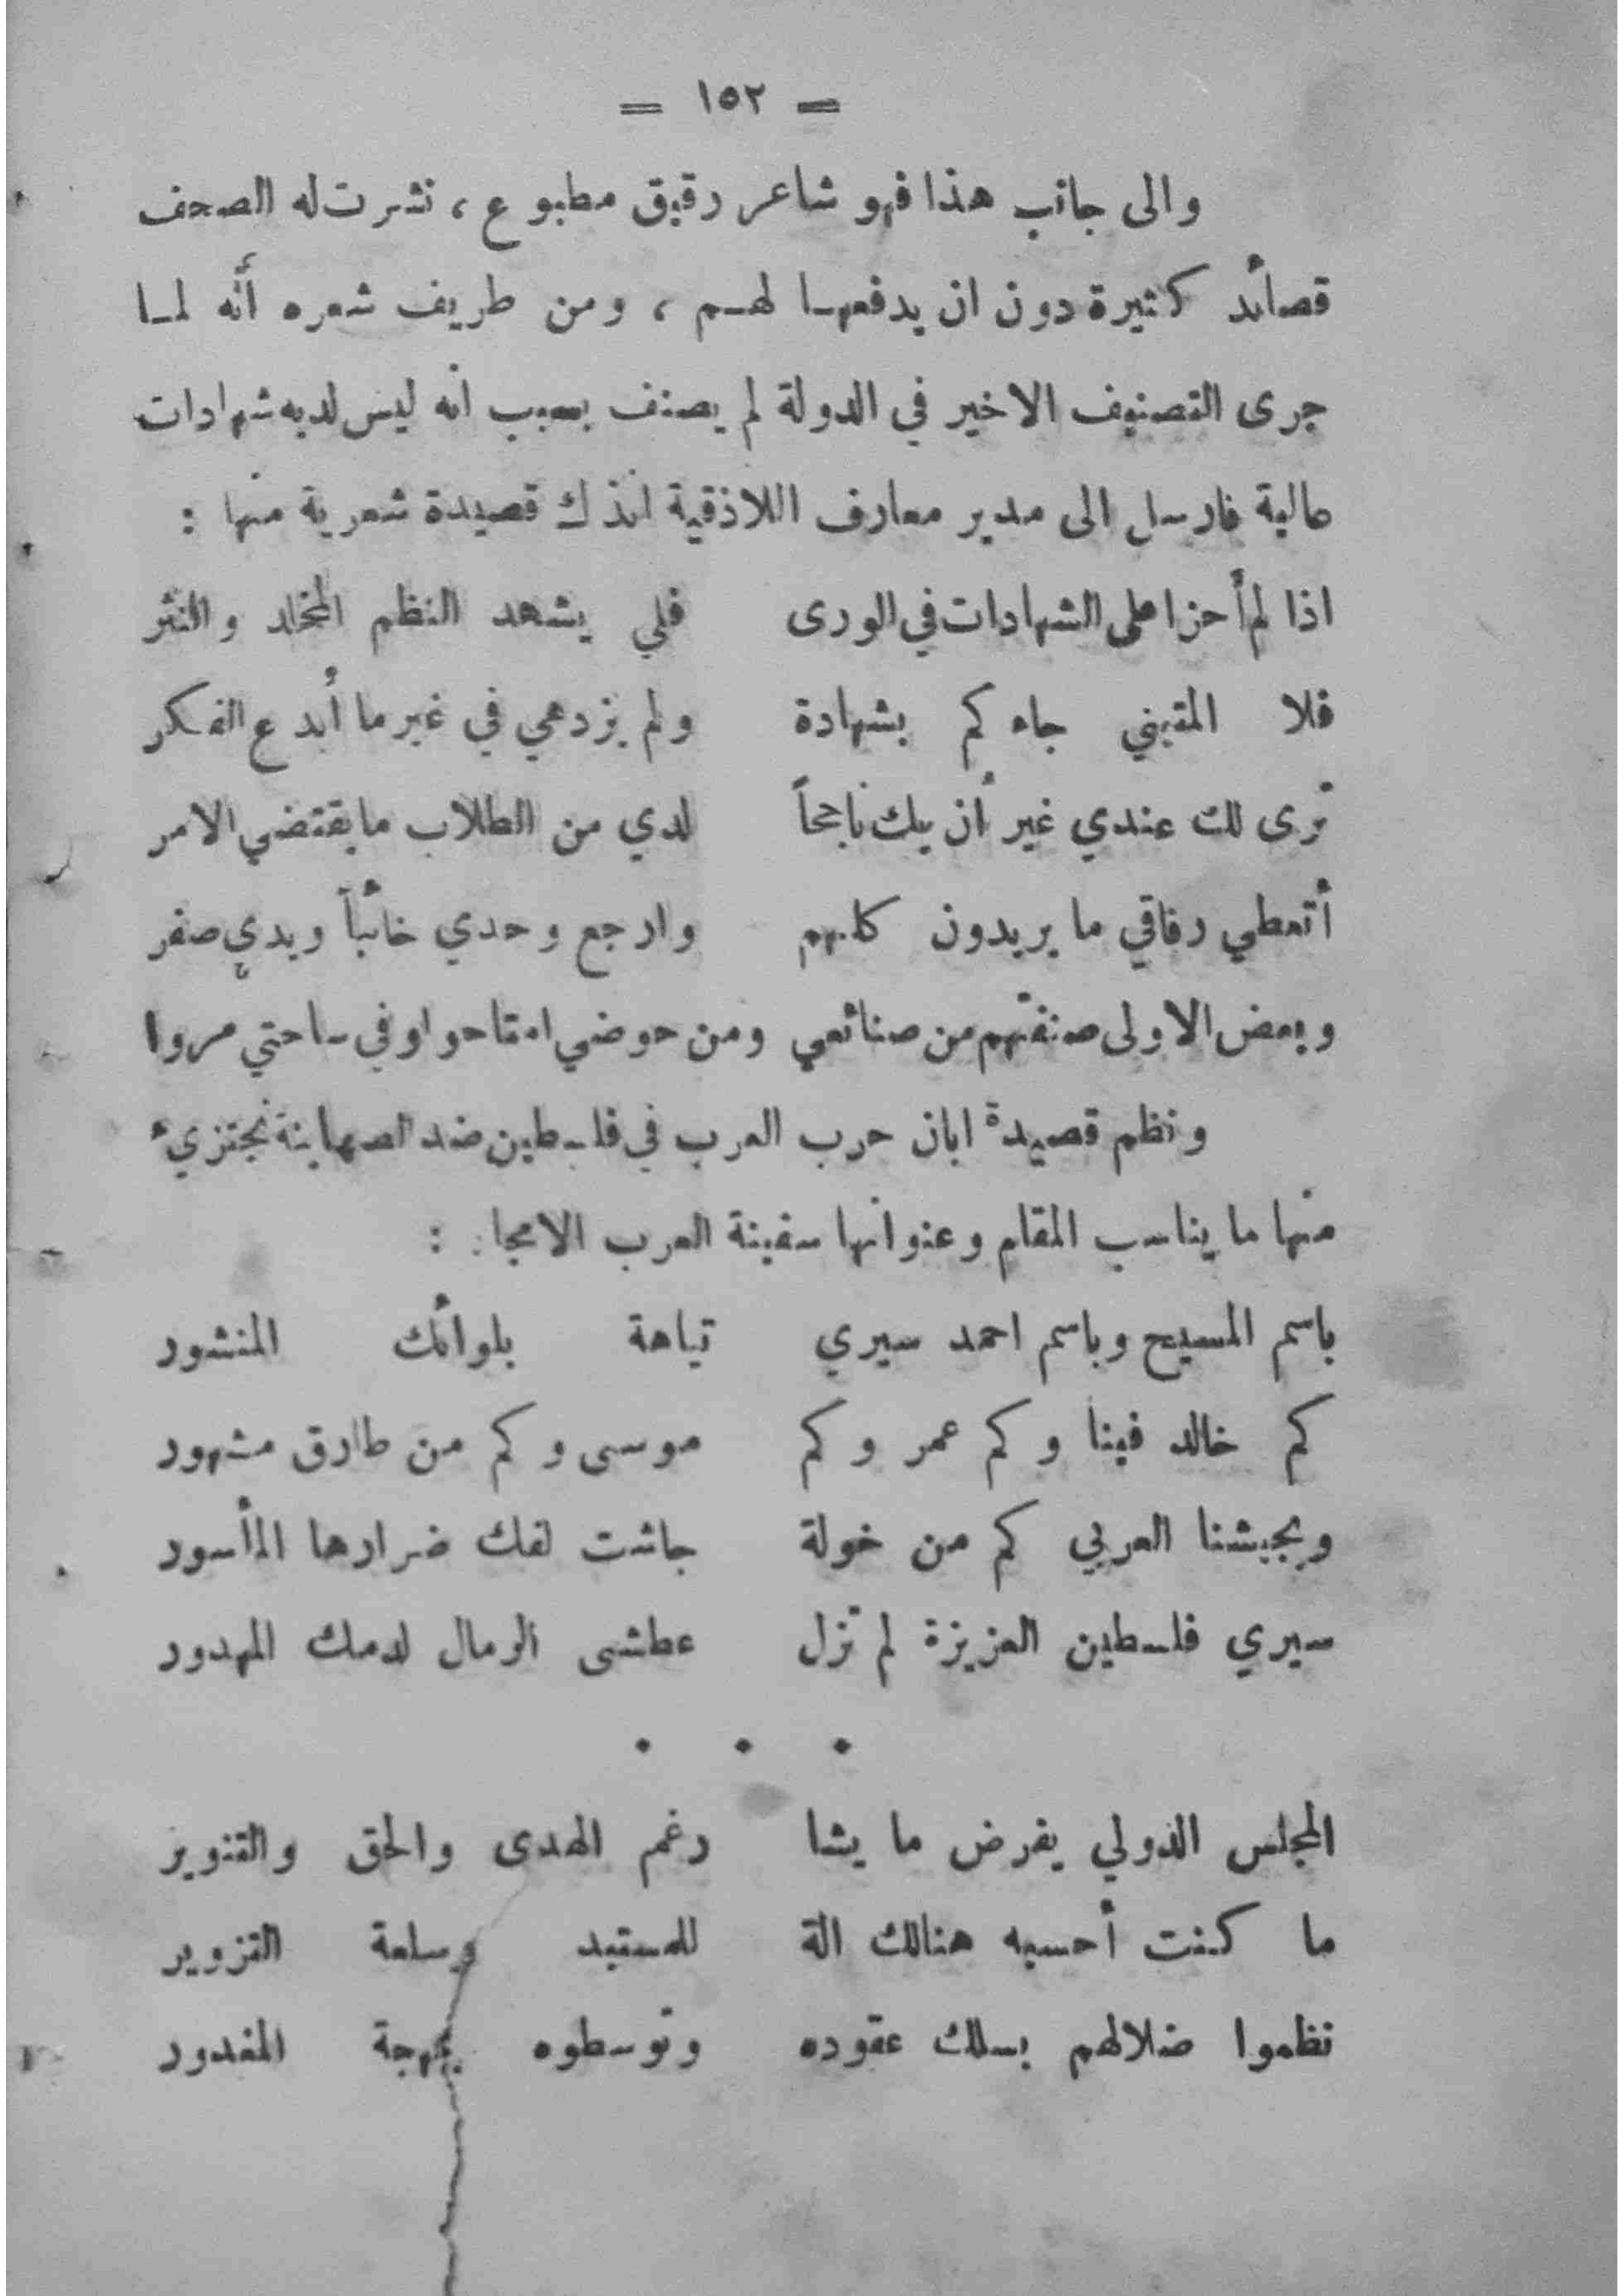 = ١٥٢ =
والى جانب هذا فهو شاعر رقيق مطبوع ، نشرت له الصحف
قصائد كثيرة دون ان يدفعها لهم ، ومن طريف شعره أنه لما
جرى التصنيف الاخير في الدولة لم يصنف بسبب انه ليس لديه شهادات
عالية فارسل الى مدير معارف اللاذقية انذك قصيدة شعرية منها :
اذا لم أحز اعلى الشهادات في الورى فلي يشهد النظم المخلد والنثر
فلا المتنبي جاءكم بشهادة ولم يزدهي في غير ما أبدع الفكر
ترى لك عندي غير أن يك ناجحاً لدي من الطلاب ما يقتضي الامر
أتعطي رفاقي ما يريدون كلهم وارجع وحدي خائباً ويدي صفر
وبعض الاولى صنفتهم من صنائعي ومن حوضي امتاحوا وفي ساحتي مروا
ونظم قصيدة ابان حرب العرب في فلسطين ضد الصهاينة نجتزيء
منها ما يناسب المقام وعنوانها سفينة العرب الامجاد :
باسم المسيح وباسم احمد سيري تياهة بلوائك المنشور
كم خالد فينا وكم عمر وكم موسى وكم من طارق مشهور
وبجيشنا العربي كم من خولة جاشت لفك ضرارها المأسور
سيري فلسطين العزيزة لم تزل عطشى الرمال لدمك المهدور
. . .
المجلس الدولي يفرض ما يشا رغم الهدى والحق والتنوير
ما كنت أحسبه هنالك الة للمستبد وسلعة التزوير
نظموا ضلالهم بسلك عقوده وتوسطوه بمهجة المغدور